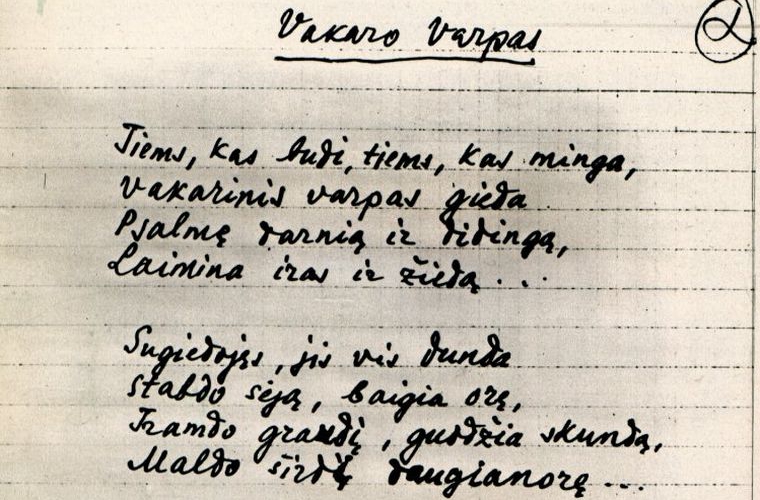 Vakaro varpas
2
Tiems, kas budi, tiems, kas minga,
Vakarinis varpas gieda
Psalmę darnią ir didingą,
Laimina iras ir žiedą...
Sugiedojęs, jis vis dunda
Stabdo sėją, baigia orę,
Tramdo graudį, guodžia skundą,
Maldo širdį daugianorę...